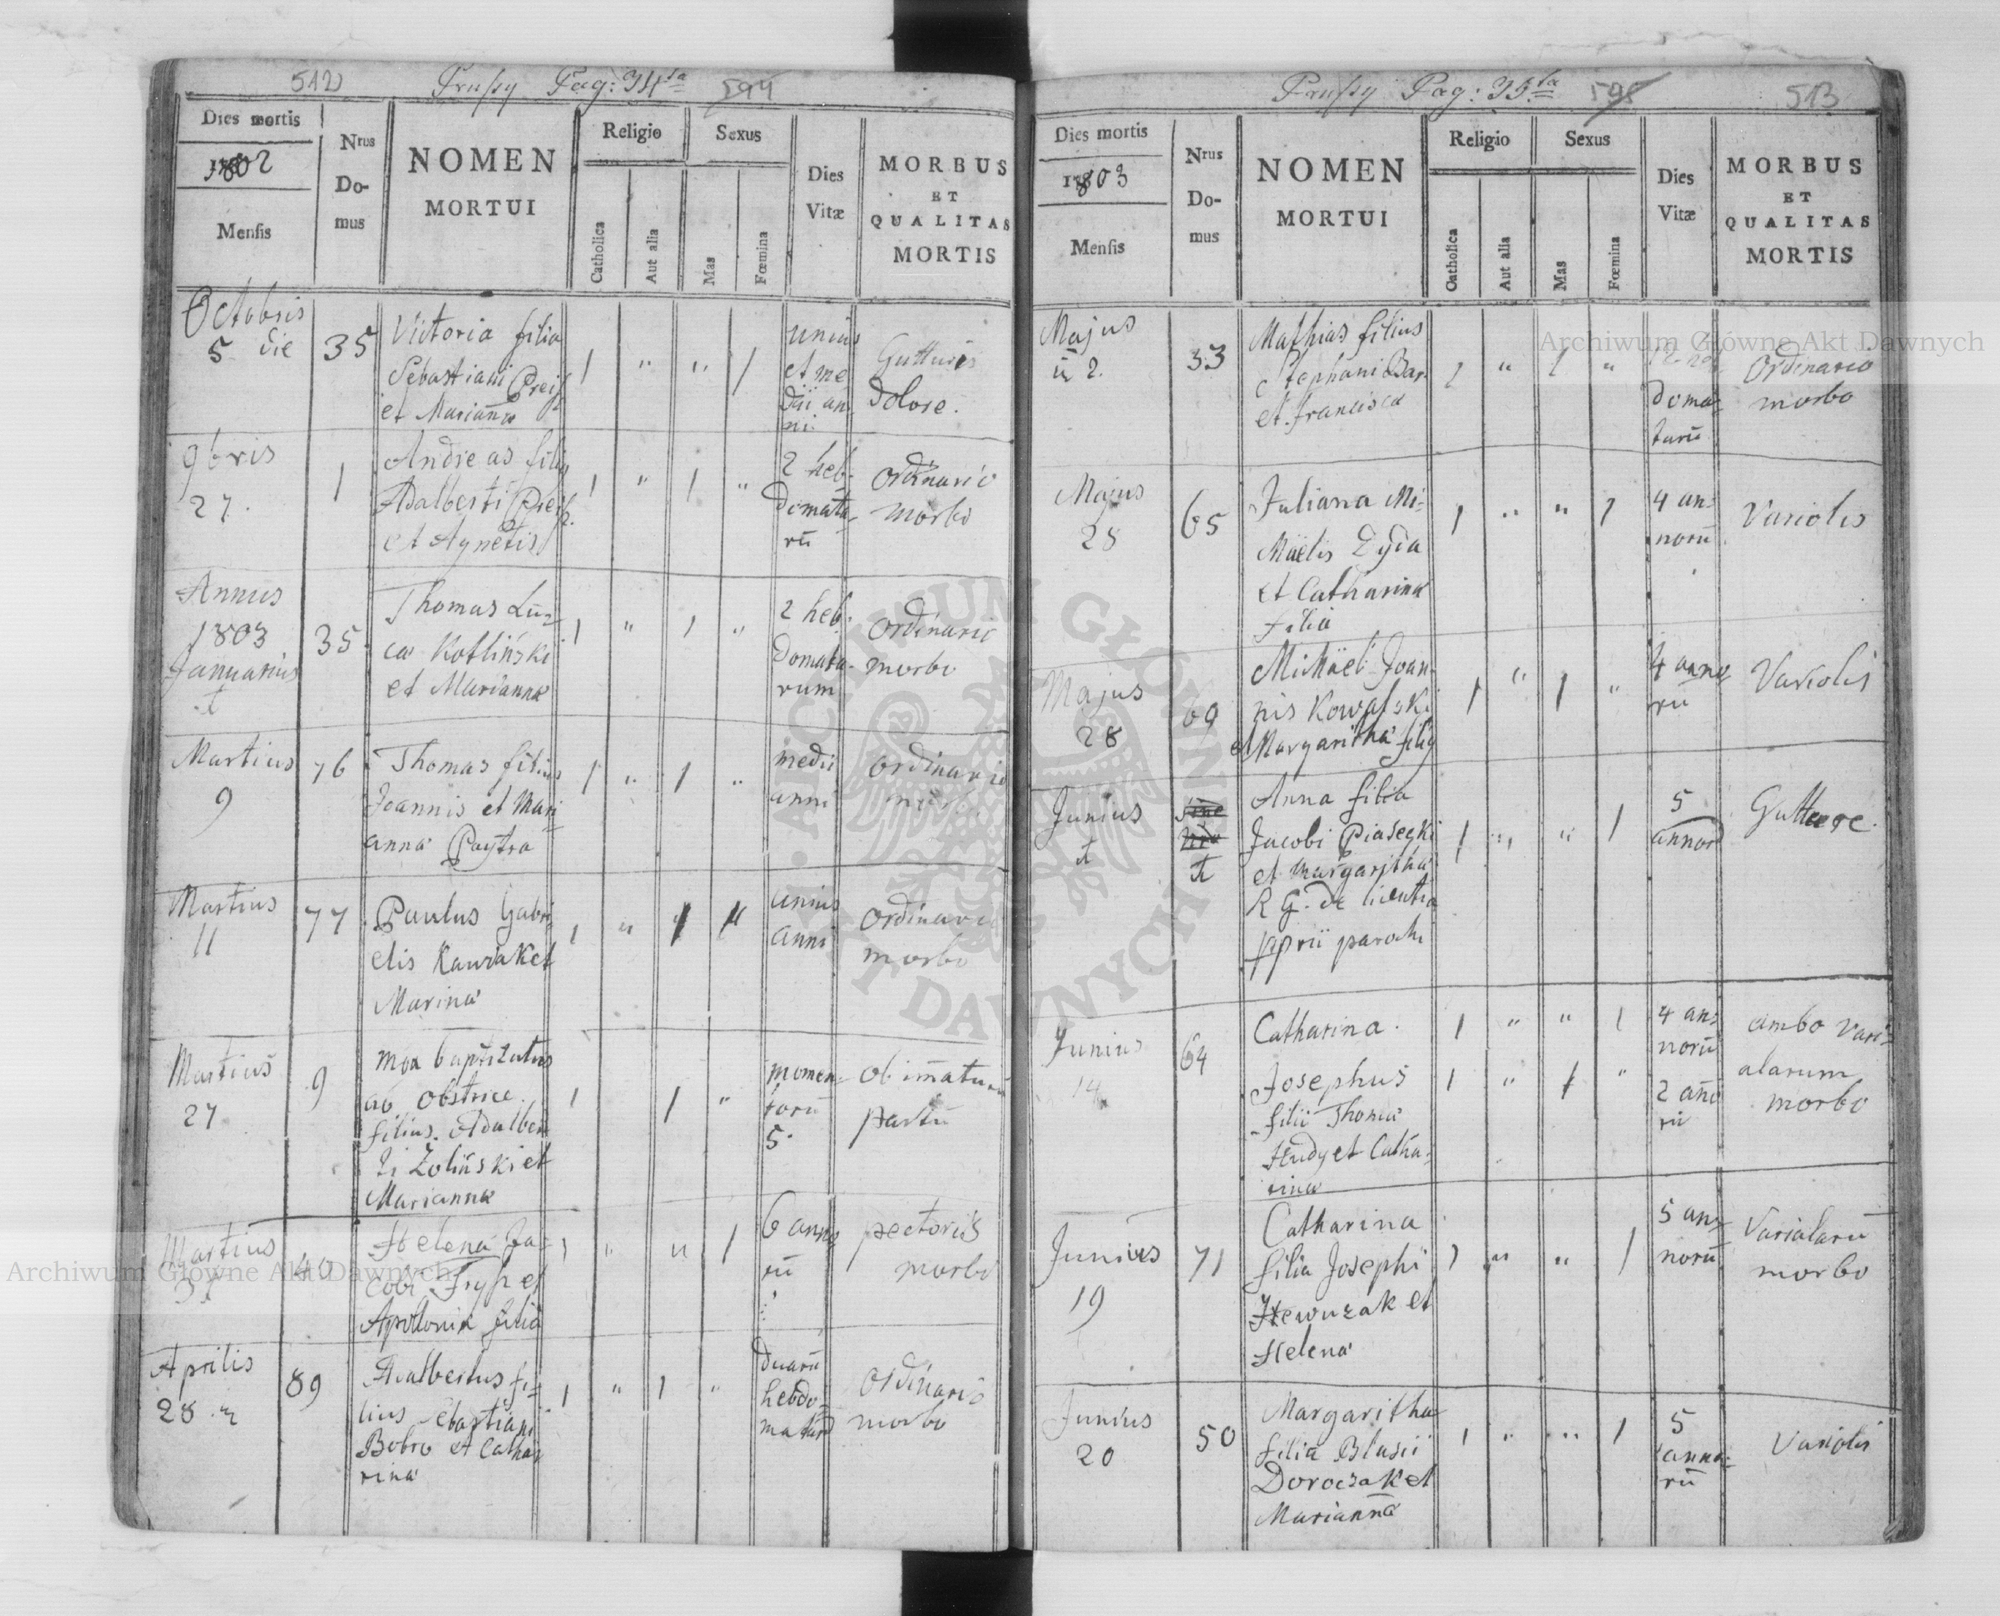 512
Prussy Pag: 34ta
594
Dies mortis
1802
Mensis
Nrus
Do-
mus
NOMEN
MORTUI
Religio
Catholica
Aut alia
Sexus
Mas
Fœmina
Dies
Vitæ
MORBUS
ET
QUALITAS
MORTIS
Octobris
5 die
35
Victoria filia
Sebastiani
et Marianna
1 " " 1
unius
et me
dii an-
ni
Gutturis
dolore.
9bris
27.
1
Andreas
Adalberti
et Agnetis
1 " 1 "
2 heb-
domata-
rū
ordinario
morbo
Annus
1803
Januarius
35
Thomas Lu-
ca Kotliński
et Marianna
1 " 1 "
2 heb-
domata-
rum
ordinario
morbo
Martius
9
76
Thomas filius
Joannis et Mari
anna Paytra
1 " 1 "
medii
anni
ordinario
Martius
11
77
Paulus Gabri
elis Kawzak et
Marina
1 " 1 "
unius
anni
ordinario
morbo
Martius
27
9
mox baptizatus
ab obstrice
filius Adalber
ti Zoliński et
Marianna
1 1 "
momen-
torū
5.
ob imaturū
partū
Martius
40
Helena Ja-
cobi et
Apollonia filia
1 " " 1
6 anno
rū
pectoris
morbo
Aprilis
28
89
Adalbertus fi-
lius Sebastiani
Bobro et Catha
rina
1 " 1 "
duarū
hebdo-
matarū
ordinario
morbo
Prussy Pag: 35ta
595
513
Dies mortis
1803
Mensis
Nrus
Do-
mus
NOMEN
MORTUI
Religio
Catholica
Aut alia
Sexus
Mas
Fœmina
Dies
Vitæ
MORBUS
ET
QUALITAS
MORTIS
Majus
2.
33
Mathias filius
Stephani Bar
et Francisca
1 " 1 "
doma-
tarū
ordinario
morbo
Majus
28
65
Juliana Mi-
Dyda
et Catharina
filia
1 " " 1
4 an-
norū
Variolis
Majus
28
69
Michael Joan-
nis Kowalski
et Margaritha
1 " 1 "
4 anno
rū
Variolis
Junius
Anna filia
Jacobi Piasecki
et Margaritha
R G. de licentia
parochi
1 " " 1
5
annorū
Gutture.
Junius
14
64
Catharina
1 " " 1
4 an-
norū
Josephus
1 " 1 "
filii Thoma
et Catha-
rina
2 anno
rū
ambo vari-
alarum
morbo
Junius
19
71
Catharina
filia Josephi
et
Helena
1 " " 1
5 an-
norū
Varialarū
morbo
Junius
20
50
Margaritha
filia Blasii
Doroczak et
Marianna
1 " " 1
5
anno-
rū
Variolis
Archiwum Główne Akt Dawnych
Archiwum Główne Akt Dawnych
ARCHIWUM GŁÓWNE AKT DAWNYCH